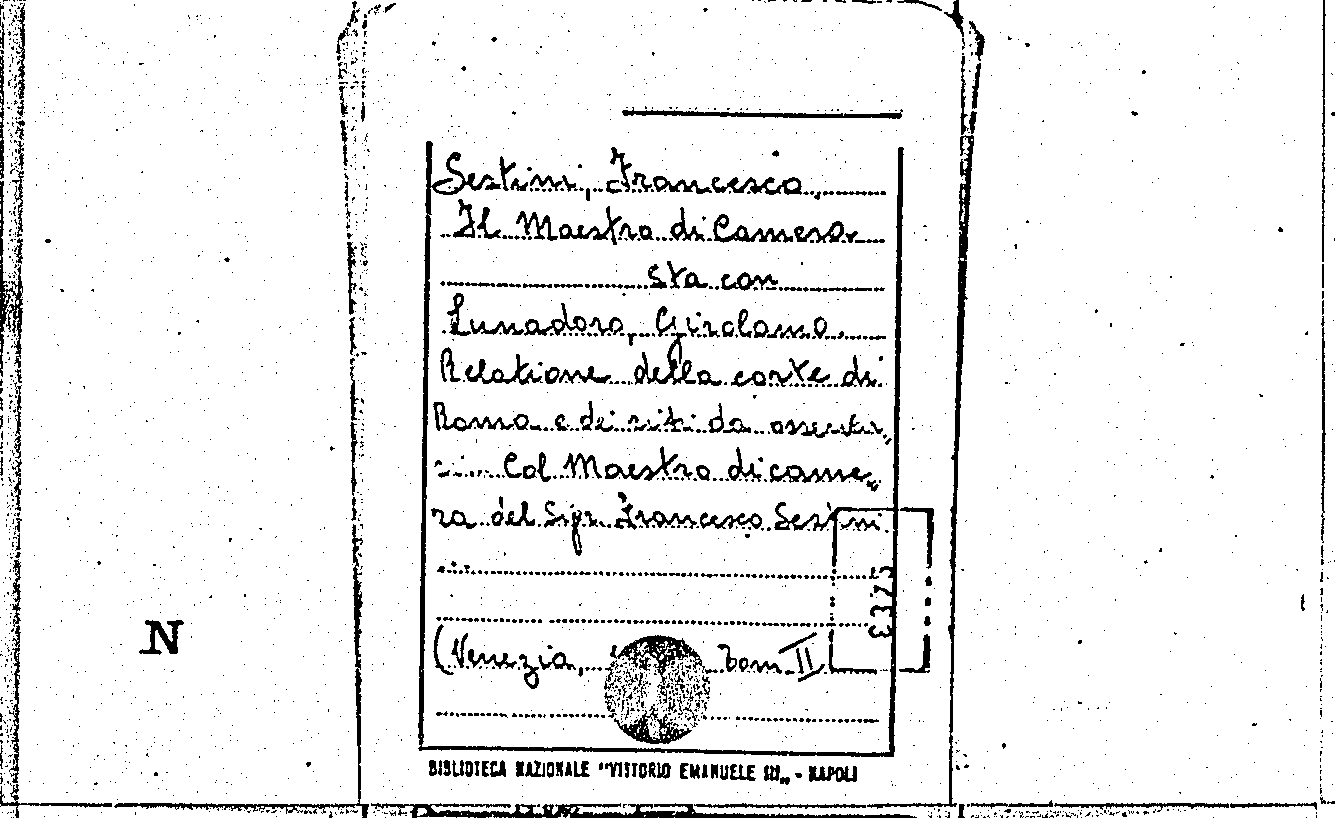 Sestini, Francesco.
Il Maestro di Camera.
sta con
Lunadoro, Girolamo.
Relatione della corte di
Roma e dei riti da osservar„
si... Col Maestro di came„
ra del Sigr. Francesco Sestini
...
(Venezia, Tom. II
E375
N
BIBLIOTECA NAZIONALE "VITTORIO EMANUELE III„ - NAPOLI